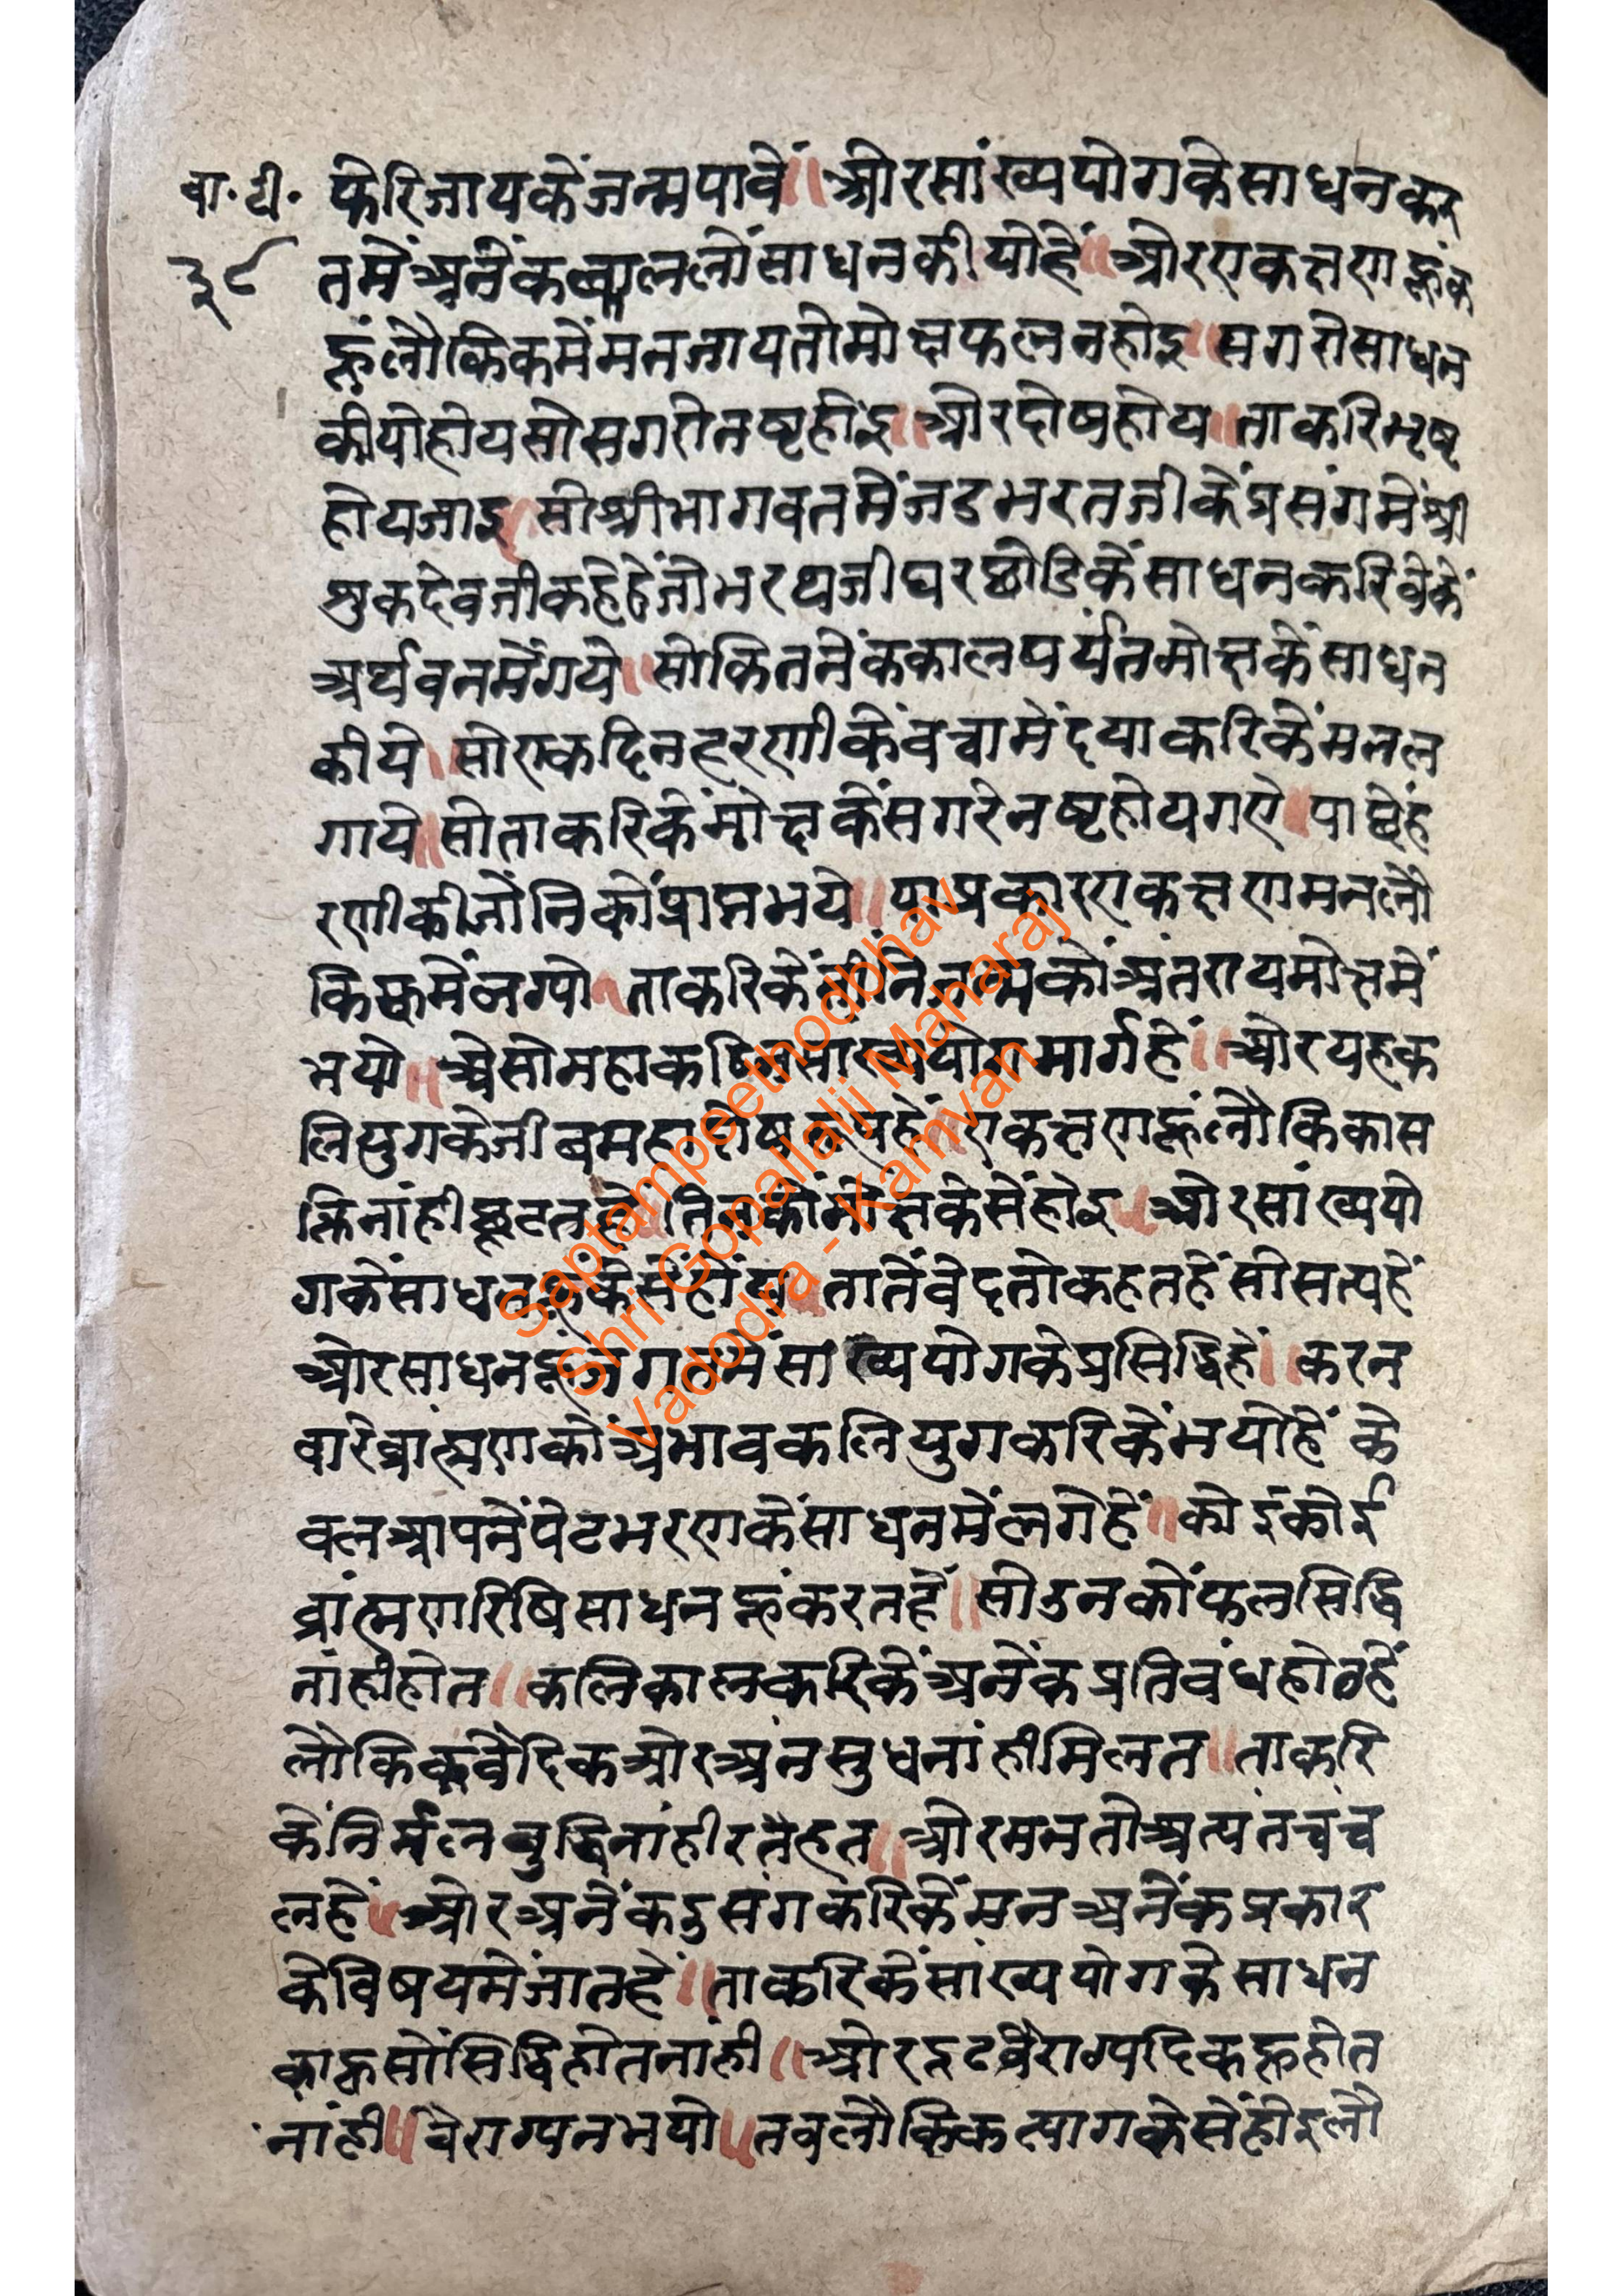 वा.टी. फेरिजायकेंजन्मपावें॥ औरसांख्ययोगकेसाधनकर
३८ तमेंअनेंककाललोंसाधनकीयोहें॥ औरएकक्षणहूंक
हूंलौकिकमेंमनजायतोमोक्षफलनहोइ॥ सगरोसाधन
कीयोहोयसोसगरोनष्टहोइ॥ औरदोषहोय॥ ताकरिभृष्ट
होयजाइ॥ सोश्रीभागवतमेंजडभरतजीकेंप्रसंगमेंश्री
शुकदेवजीकहेहेंजोभरथजीघरछोडिकेंसाधनकरिवेकें
अर्थवनमेंगये॥ सोकितनेंककालपर्यंतमोक्षकेंसाधन
कीये॥ सोएकदिनहरणीकेंबच्चामेंदयाकरिकेंमनल
गाये॥ सोताकरिकेंमोक्षकेंसगरेनष्टहोयगए॥ पाछेंह
रणीकीजोनिकोंप्राप्तभये॥ याप्रकारएकक्षणमनलौ
किकमेंलग्यो॥ ताकरिकेंतीनिजन्मकोंअंतरायमोक्षमें
भयो॥ असोमहाकठिनसांख्ययोगमार्गहें॥ औरयहक
लियुगकेजीवमहादोषरूपहें॥ एकक्षणहूंलौकिकास
क्तिनांहीछूटतहे॥ तिनकोंमोक्षकेसेंहोइ॥ औरसांख्ययो
गकेंसाधनहूंकेसेंहोंय॥ तातेंवेदतोकहतहेंसोसत्यहें
औरसाधनहूंजगतमेंसांख्ययोगकेप्रसिद्धिहें॥ करन
वारेब्राह्मणकोंअभावकलियुगकरिकेंभयोहें के
वलआपनेंपेटभरणकेंसाधनमेंलगेहें॥ कोईकोई
ब्रांह्मणरिषिसाधनहूंकरतहें॥ सोउनकोंफलसिद्धि
नांहीहोत॥ कलिकालकरिकेंअनेंकप्रतिबंधहोतहें
लौकिकवैदिकओरअंनसुधनांहीमिलत॥ ताकरि
केंनिर्मलबुद्धिनांहीरहत॥ औरमनतोअत्यंतचंच
लहें॥ औरअनेंकदुसंगकरिकेंमनअनेंकप्रकार
केविषयमेंजातहें॥ ताकरिकेंसांख्ययोगकेसाधन
काहूसोंसिद्धिहोतनांही॥ औरदृढवैराग्यदिकहूहोत
नांही॥ वैराग्यनभयो॥ तबलौकिकत्यागकेसेंहोइलौ
Saptampeethodbhav
Shri Gopallalji Maharaj
Vadodra - Kamvan